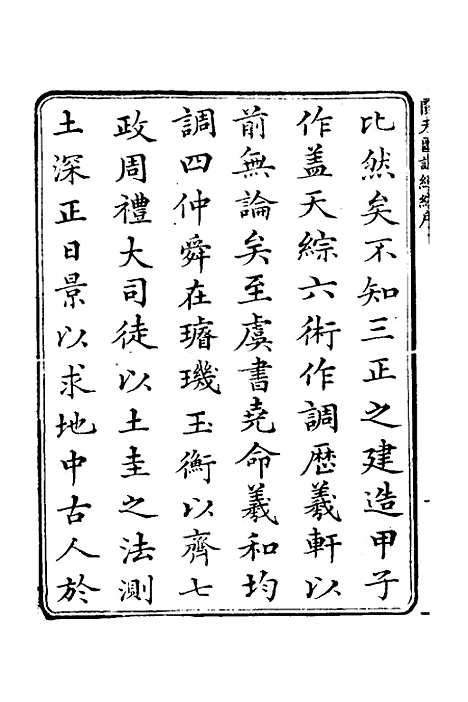 比然矣不知三正之建造甲子
作盖天綜六術作調歷羲軒以
前無論矣至虞書堯命羲和均
調四仲舜在璿璣玉衡以齊七
政周禮大司徒以土圭之法測
土深正日景以求地中古人於